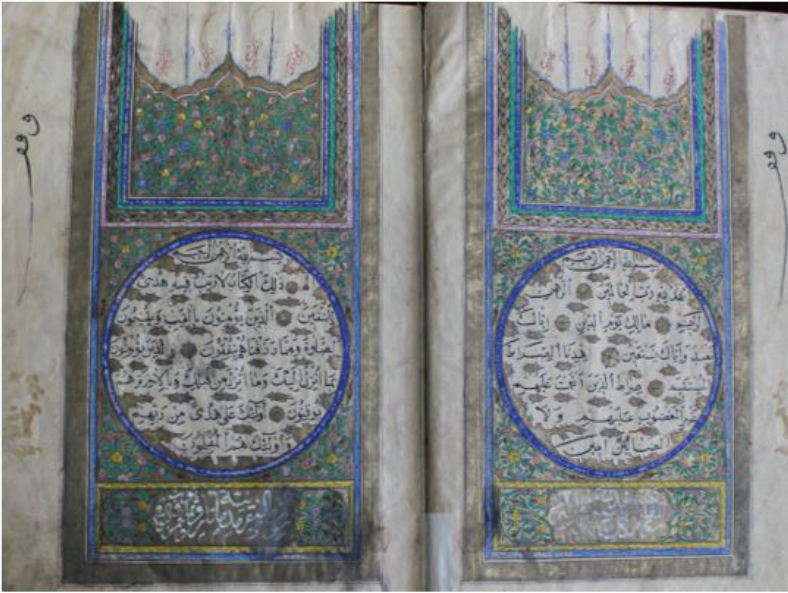 وقف
بسم الله الرحمن الرحيم
الحمد لله رب العالمين الرحمن
الرحيم مالك يوم الدين اياك
نعبد واياك نستعين اهدنا الصراط
المستقيم صراط الذين انعمت عليهم
غير المغضوب عليهم ولا
الضالين آمين
بسم الله الرحمن الرحيم
الم ذلك الكتاب لا ريب فيه هدى
للمتقين الذين يؤمنون بالغيب ويقيمون
الصلوة ومما رزقناهم ينفقون والذين يؤمنون
بما انزل اليك وما انزل من قبلك وبالاخرة هم
يوقنون اولئك على هدى من ربهم
واولئك هم المفلحون
وقف